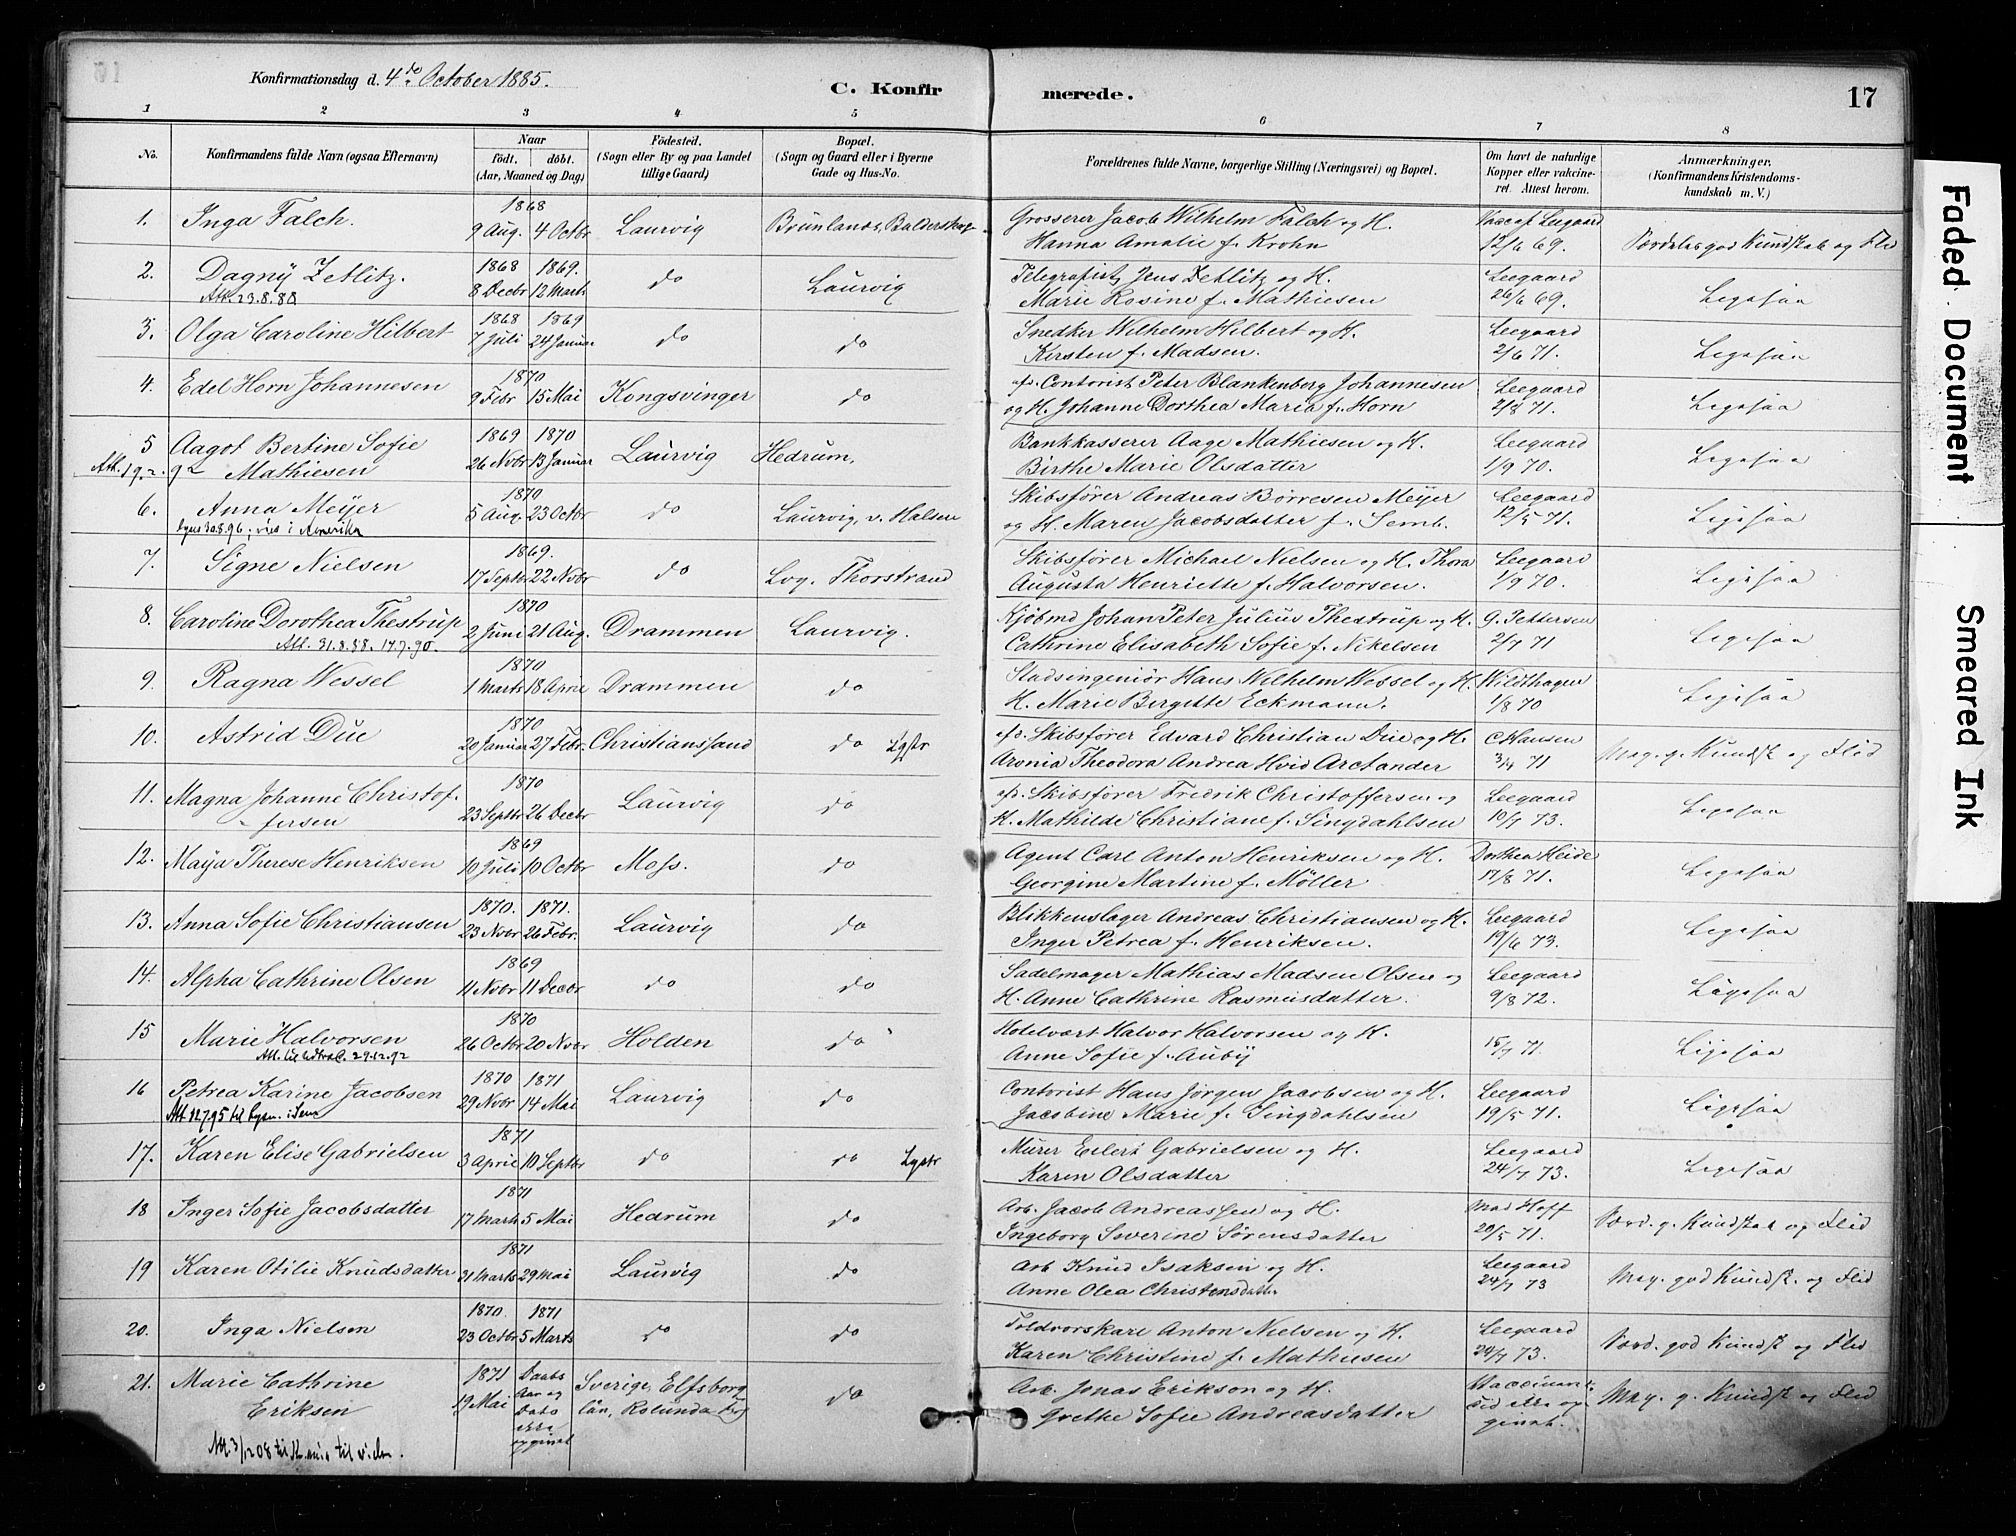 Konfirmationsdag d. 4de October 1885.
C. Konfirmerede.
17
1 2 3 4 5 6 7 8
No.
Konfirmandens fulde Navn (ogsaa Efternavn)
Naar
født. døbt.
(Aar, Maaned og Dag)
Fødested.
(Sogn eller By og paa Landet
tillige Gaard)
Bopæl.
(Sogn og Gaard eller i Byerne
Gade og Hus-No.
Forældrenes fulde Navne, borgerlige Stilling (Næringsvei) og Bopæl.
Om havt de naturlige
Kopper eller vakcine-
ret. Attest herom.
Anmærkninger.
(Konfirmandens Kristendoms-
kundskab m. V.)
1. Inga Falch. 1868 9 Aug. 4 Octbr Laurvig Brunlanes, Grosserer Jacob Wilhelm Falch og H.
Hanna Amalie f. Krohn Leegaard 12/6 69. Særdeles god Kundskab og Flid
2. Dagny Zetlitz. 1868 1869. 8 Decbr 12 Marts do Laurvig Telegrafist Jens Zetlitz og H.
Att. 23.8.88 Marie Rosine f. Mathiesen Leegaard 26/6 69. Ligesaa
3. Olga Caroline Hilbert 1868 1869 7 Juli 24 Januar do do Snedker Wilhelm Hilbert og H.
Kirsten f. Madsen. Leegaard 2/6 71. Ligesaa
4. Edel Horn Johannesen 1870 9 Febr 15 Mai Kongsvinger do afd. Contorist Peter Blankenborg Johannesen
og H. Johanne Dorthea Maria f. Horn Leegaard 2/8 71. Ligesaa
5 Aagot Bertine Sofie 1869 1870 26 Novbr 13 Januar Laurvig Hedrum. Bankkasserer Aage Mathiesen og H.
Att. 19.2.92 Mathiesen Birthe Marie Olsdatter Leegaard 1/9 70. Ligesaa
6. Anna Meyer 1870 5 Aug. 23 Octbr do Laurvig, v. Halsen Skibsfører Andreas Børresen Meyer
30.8.96, i Amerika og H. Maren Jacobsdatter f. Semb. Leegaard 12/5 71. Ligesaa
7. Signe Nielsen 1869. 17 Septbr 22 Novbr do Lvg. Thorstrand Skibsfører Michael Nielsen og H. Thora
Augusta Henriette f. Halvorsen. Leegaard 1/9 70. Ligesaa
8. Caroline Dorothea Thestrup 1870 2 Juni 21 Aug. Drammen Laurvig. Kjøbmd Johan Peter Julius Thestrup og H.
Att. 31.8.88. 14.7.90. Cathrine Elisabeth Sofie f. Nikelsen G. Pettersen 2/7 71 Ligesaa
9. Ragna Wessel 1870 1 Marts 18 April Drammen do Stadsingeniør Hans Wilhelm Wessel og H.
H. Marie Birgitte Eckmann. Wildthagen 1/8 70 Ligesaa
10. Astrid Due 1870 20 Januar 27 Febr. Christianssand do Lgstr afd. Skibsfører Edvard Christian Due og H.
Aronia Theodora Andrea Hvid Arctander C. Hansen 71 Meg. g. Kundsk og Flid
11. Magna Johanne Christof- 1870 23 Septbr 26 Decbr Laurvig do afd. Skibsfører Fredrik Christoffersen og
fersen H. Mathilde Christiane f. Singdahlsen Leegaard 10/7 73. Ligesaa
12. Maya Therese Henriksen 1869 10 Juli 10 Octbr Moss. do Agent Carl Anton Henriksen og H.
Georgine Martine f. Møller Dorthea Heide 17/8 71. Ligesaa
13. Anna Sofie Christiansen 1870. 1871. 23 Novbr 26 Febr. Laurvig do Blikkenslager Andreas Christiansen og H.
Inger Petrea f. Henriksen. Leegaard 19/6 73. Ligesaa
14. Alpha Cathrine Olsen 1869 11 Novbr 11 Decbr do do Sadelmager Mathias Madsen Olsen og
H. Anne Cathrine Rasmusdatter. Leegaard 9/8 72. Ligesaa
15 Marie Halvorsen 1870 26 Octbr 20 Novbr Holden do Hotelvært Halvor Halvorsen og H.
29.12.92 Anne Sofie f. Auby 15/7 71. Ligesaa
16 Petrea Karine Jacobsen 1870 1871 29 Novbr 14 Mai Laurvig do Contorist Hans Jørgen Jacobsen og H.
Att 12.7.95 til Jacobine Marie f. Singdahlsen Leegaard 19/5 71. Ligesaa
17. Karen Elise Gabrielsen 1871 3 April 10 Septbr do do Lgstr Murer Eilert Gabrielsen og H.
Karen Olsdatter Leegaard 24/7 73. Ligesaa
18 Inger Sofie Jacobsdatter 1871 17 Marts 5 Mai Hedrum do Arb. Jacob Andreassen og H.
Ingeborg Severine Sørensdatter Mad Hoff 20/5 71. Særd. g. Kundskab og Flid
19 Karen Otilie Knudsdatter 1871 31 Marts 29 Mai Laurvig do Arb Knud Isaksen og H.
Anne Olea Christensdatter Leegaard 24/7 73 Meg. god Kundsk. og Flid
20. Inga Nielsen 1870. 1871 23 Octbr 5 Marts do do Toldvorskarl Anton Nielsen og H.
Karen Christine f. Mathiesen Leegaard 24/7 73. Særd. god Kundsk og Flid
21. Marie Cathrine 1871 19 Mai Daabs Aar og Dato ikke opgivet Sverige, Elfsborg do Arb. Jonas Erikson og H.
Eriksen län, Rölunda Grethe Sofie Andreasdatter Vaccinant. tid ikke op- givet. Meg. g. Kundsk og Flid
Faded Document Smeared Ink